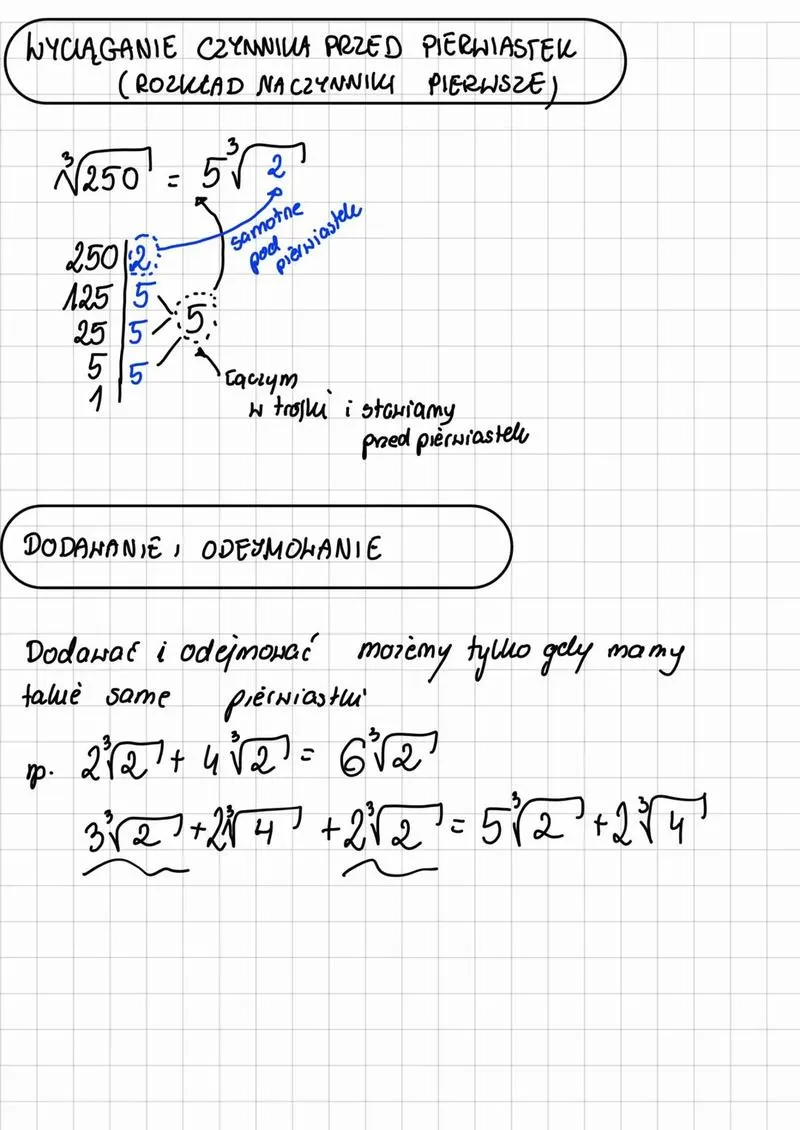 WYCIĄGANIE CZYNNIKA PRZED PIERWIASTEK
(ROZKŁAD NA CZYNNIKI PIERWSZE)
∛250 = 5∛2
250 | 2
125 | 5
25 | 5
5 | 5
1
5
samotne
pod
pierwiastek
Łączym
w trójki i stawiamy
przed pierwiastek
DODAWANIE I ODEJMOWANIE
Dodawać i odejmować możemy tylko gdy mamy
takie same pierwiastki
np. 2∛2 + 4∛2 = 6∛2
3∛2 + 2∛4 + 2∛2 = 5∛2 + 2∛4